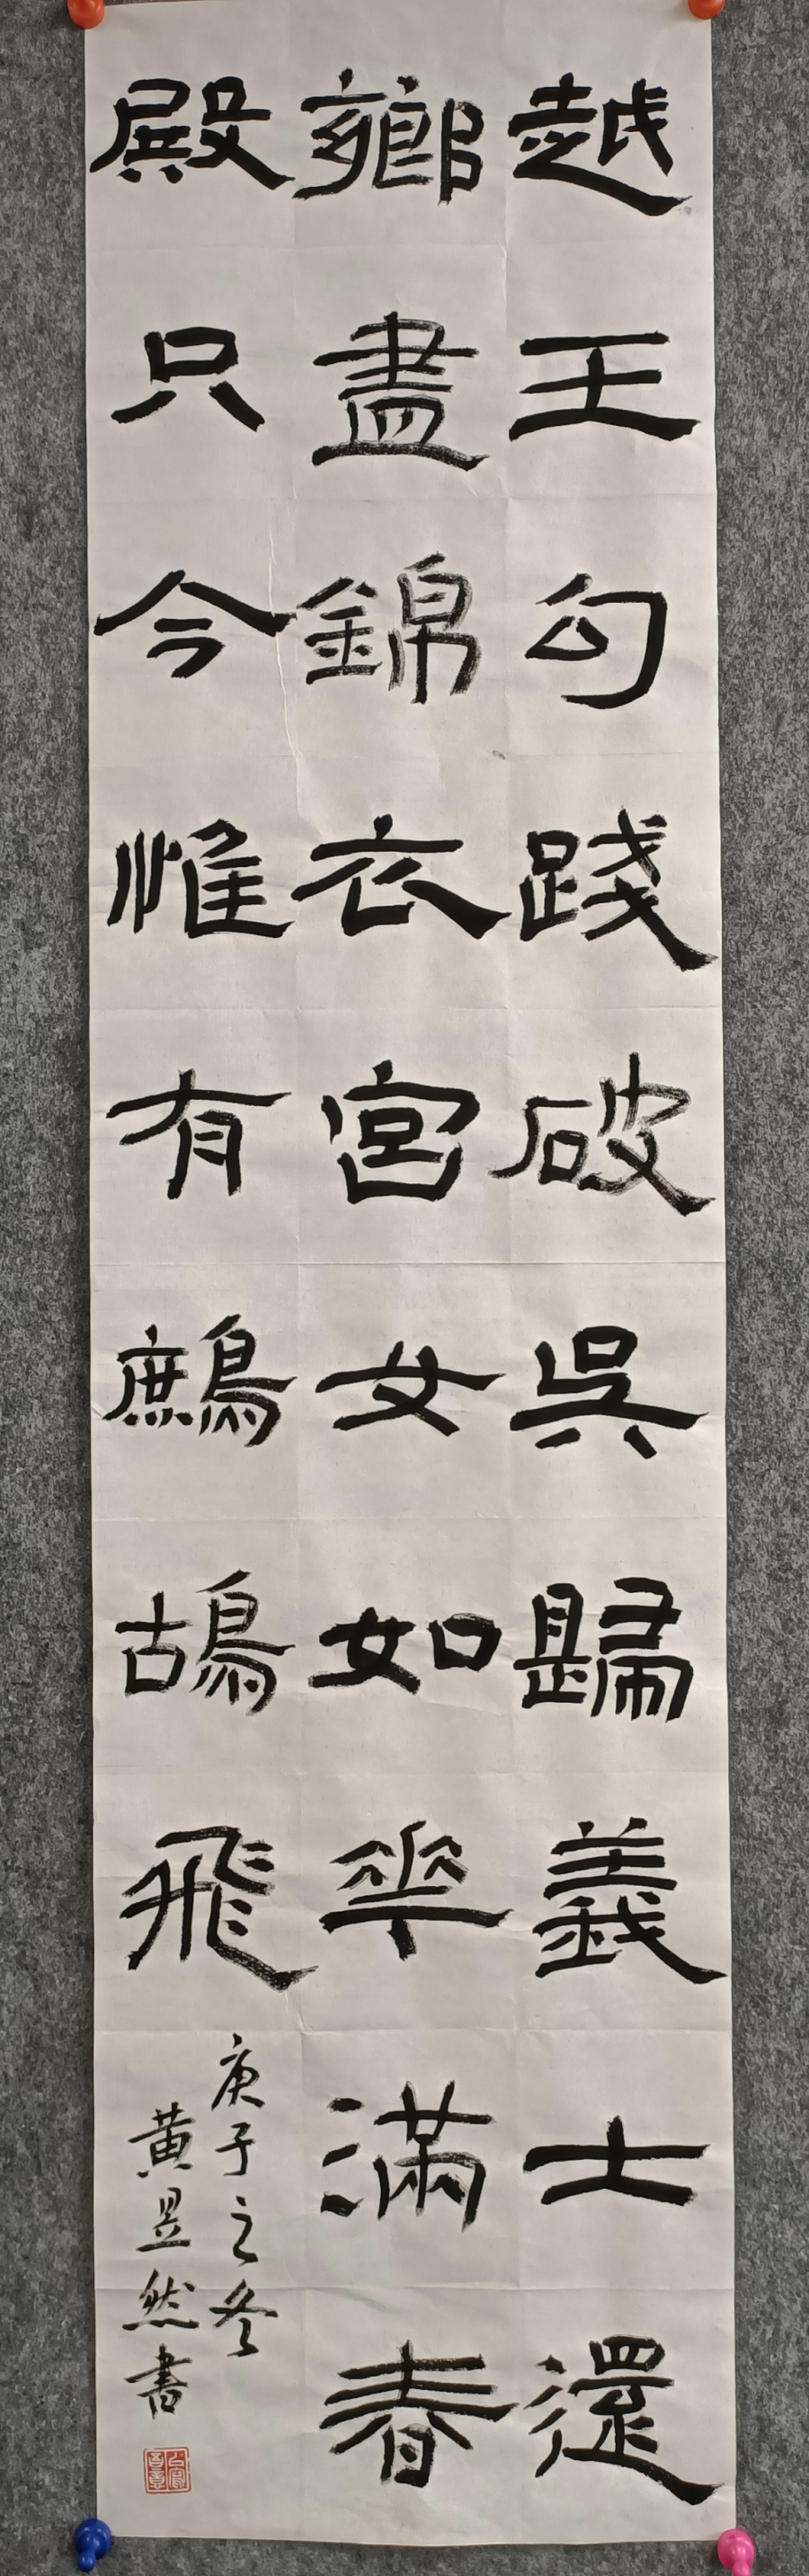 越王勾踐破吳歸義士還
鄉盡錦衣宮女如花滿春
殿只今惟有鷓鴣飛
庚子之冬
黃昱然書